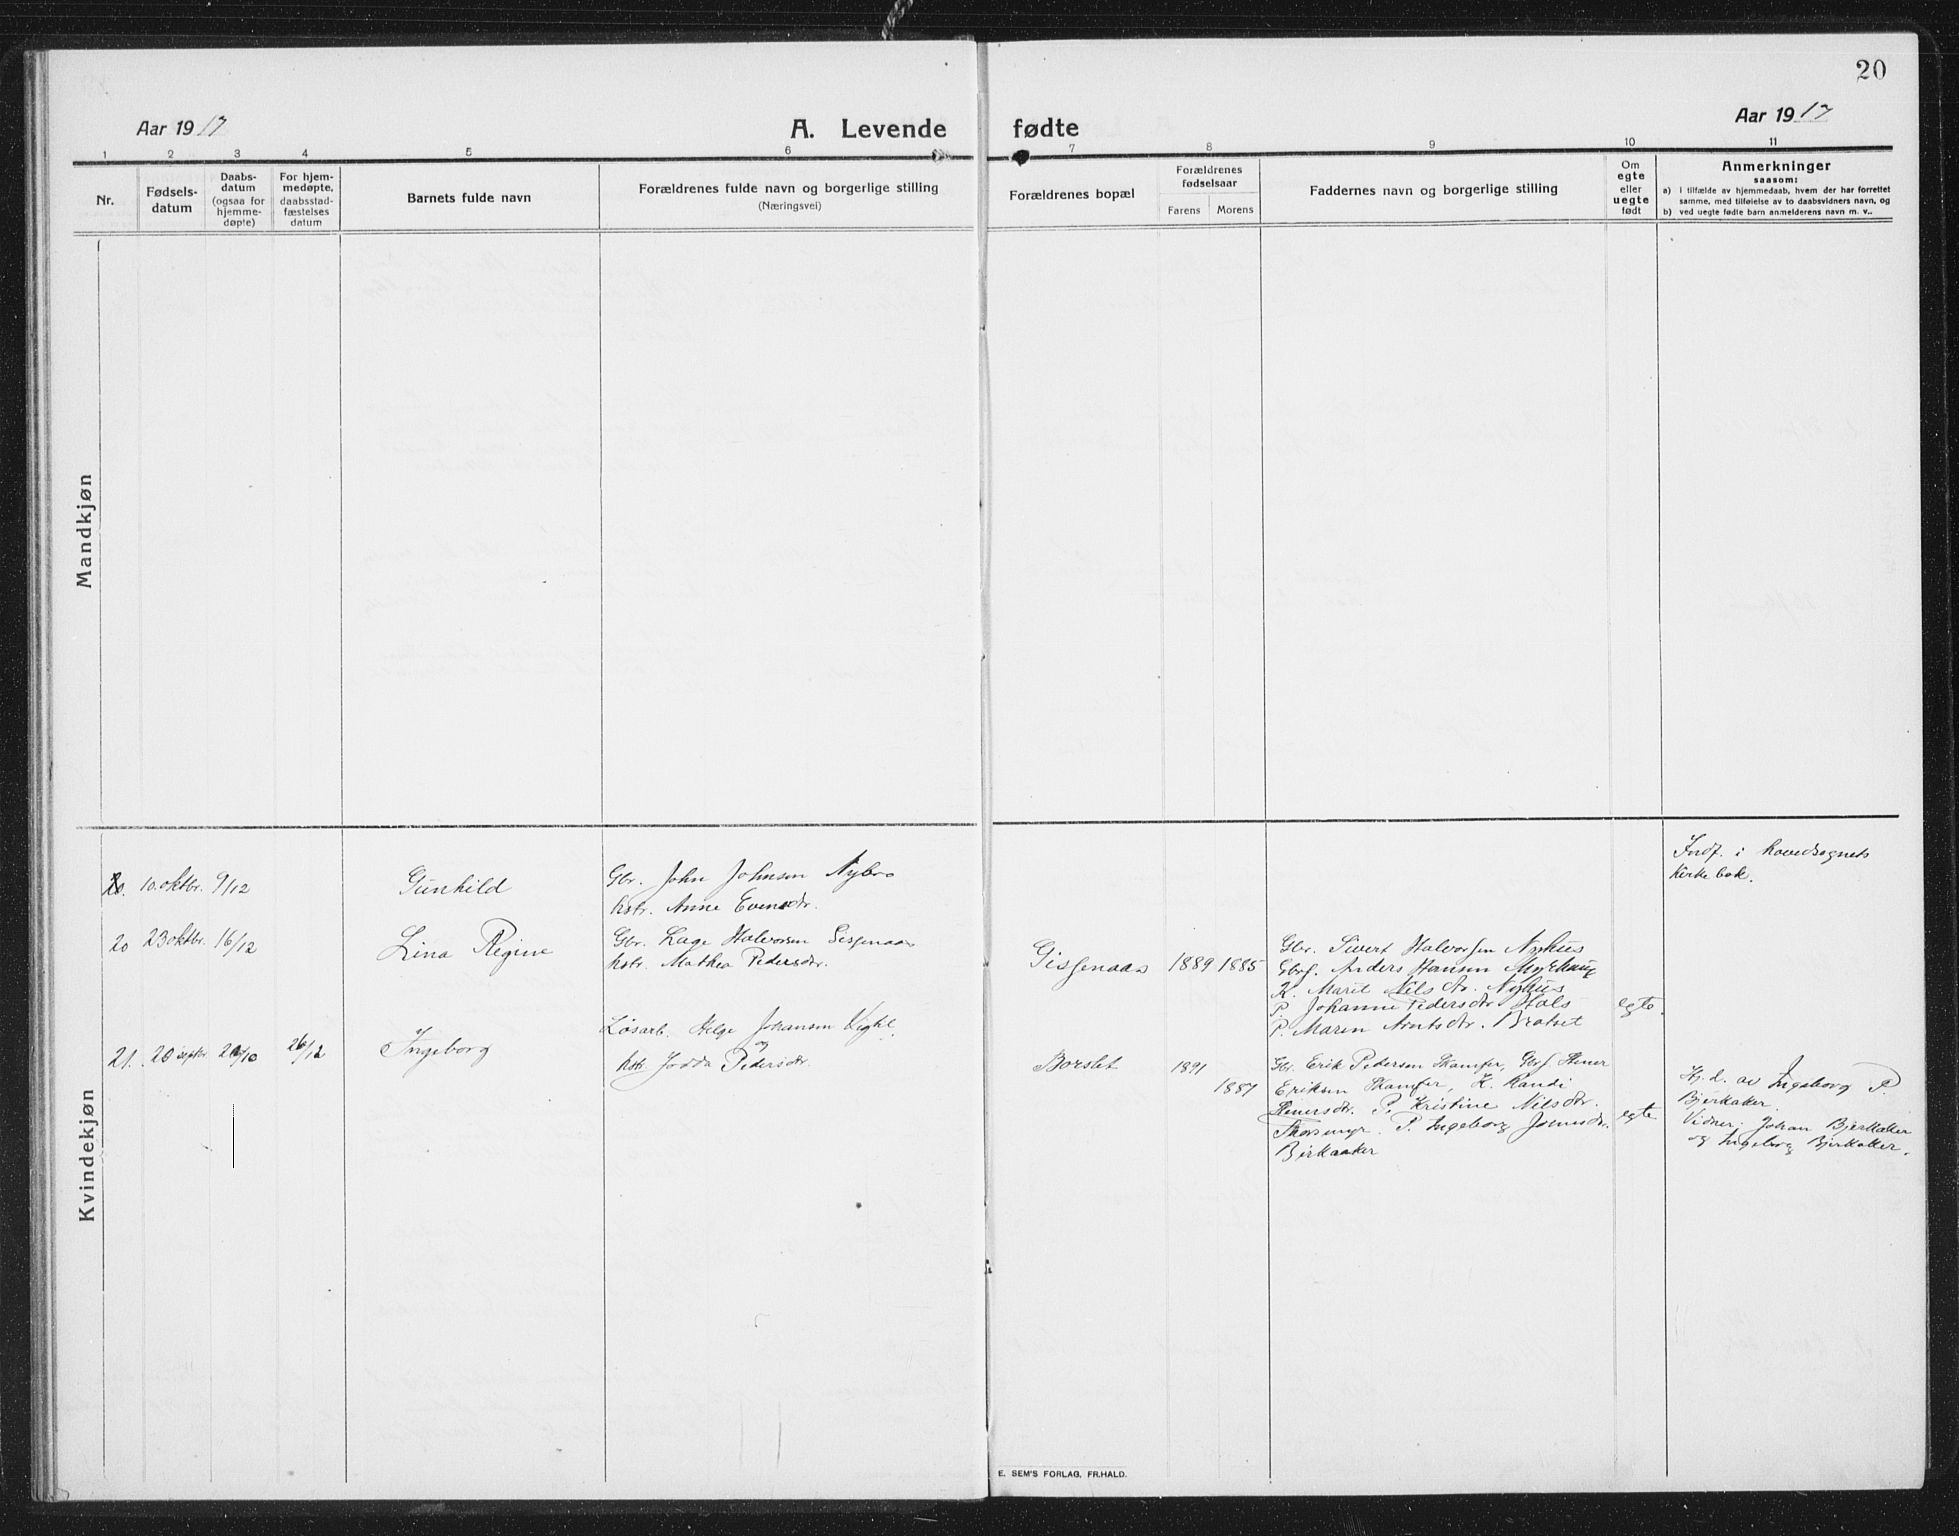 20
Aar 1917
A. Levende fødte
Aar 1917
1 2 3 4 5 6 7 8 9 10 11
Nr.
Fødsels-
datum
Daabs-
datum
(ogsaa for
hjemme-
døpte)
For hjem-
medøpte,
daabsstad-
fæstelses
datum
Barnets fulde navn
Forældrenes fulde navn og borgerlige stilling
(Næringsvei)
Forældrenes bopæl
Forældrenes
fødselsaar
Farens Morens
Faddernes navn og borgerlige stilling
Om
egte
eller
uegte
født
Anmerkninger
saasom:
a) i tilfælde av hjemmedaab, hvem der har forrettet
samme, med tilføielse av to daabsvidners navn, og
b) ved uegte fødte barn anmelderens navn m. v..
Mandkjøn
Kvindekjøn
10. oktbr. 9/12
Gunhild
Gbr. John Johnsen Nybro
hstr. Anne Evensdr.
Indf. i hovedsognets
kirkebok.
20 23 oktbr. 16/12
Lina Regine
Gbr. Lage Halvorsen
hstr. Mathea Pedersdr.
1889 1885
Gbr. Sivert Halvorsen Nyhus
Anders Hansen
K. Marit Nilsdr. Nyhus
P. Johanne Pedersdr. Hols
P. Maren Arntsdr. Bratset
egte.
21. 20 septbr. 26/12
Ingeborg
Løsarb. Helge Johansen
og
hstr. Jodda Pedersdr.
Borstet
1891
1887
Gbr. Erik Pedersen Skamfer, Gbrf. Stener
Eriksen Skamfer, K. Randi
Stenersdr. P. Kristine Nilsdr.
P. Ingeborg
Birkaaker
egte
Hj. d. av Ingeborg P.
Bjerkaker.
Vidner: Johan Bjerkaker
og Ingeborg Bjerkaker.
E. SEM'S FORLAG, FR.HALD.